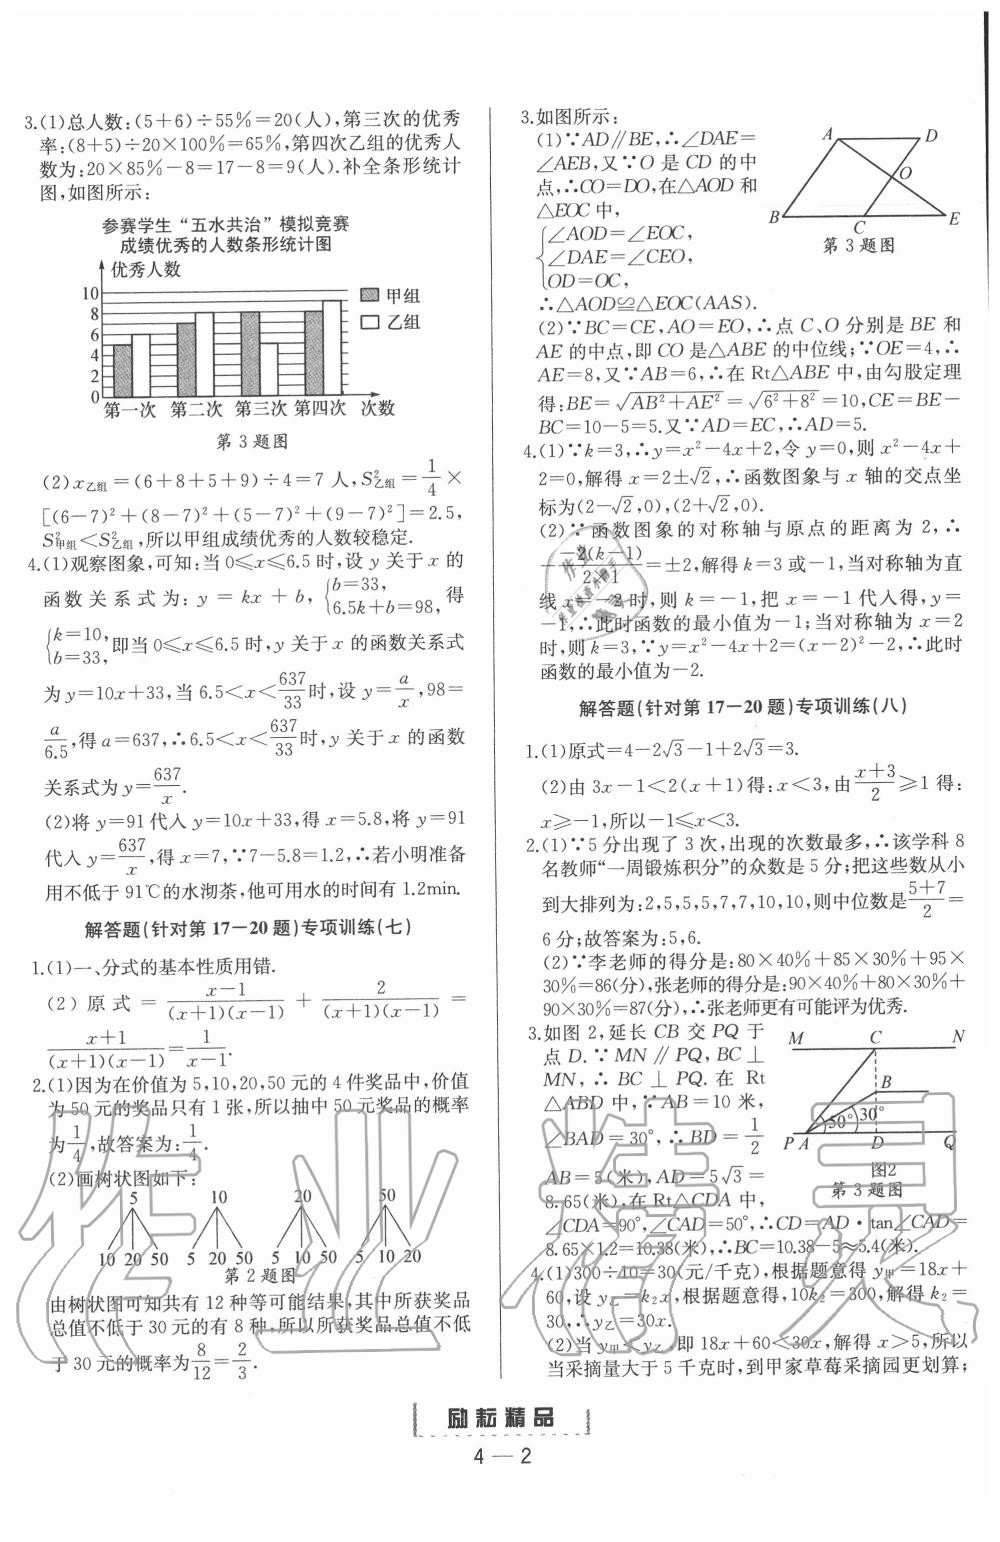 3.(1)总人数:(5+6)÷55%=20(人),第三次的优秀
率:(8+5)÷20×100%=65%,第四次乙组的优秀人
数为:20×85%-8=17-8=9(人).补全条形统计
图,如图所示:
参赛学生“五水共治”模拟竞赛
成绩优秀的人数条形统计图
优秀人数
10
8
6
4
2
0
甲组
乙组
第一次 第二次 第三次 第四次 次数
第3题图
(2)x乙组=(6+8+5+9)÷4=7人,S²乙组=1/4×
[(6-7)²+(8-7)²+(5-7)²+(9-7)²]=2.5,
S²甲组<S²乙组,所以甲组成绩优秀的人数较稳定.
4.(1)观察图象,可知:当0≤x≤6.5时,设y关于x的
函数关系式为:y=kx+b,{b=33, 6.5k+b=98,得
{k=10, b=33,即当0≤x≤6.5时,y关于x的函数关系式
为y=10x+33,当6.5<x<637/33时,设y=a/x,98=
a/6.5,得a=637,∴6.5<x<637/33时,y关于x的函数
关系式为y=637/x.
(2)将y=91代入y=10x+33,得x=5.8,将y=91
代入y=637/x,得x=7,∵7-5.8=1.2,∴若小明准备
用不低于91℃的水沏茶,他可用水的时间有1.2min.
解答题(针对第17-20题)专项训练(七)
1.(1)一、分式的基本性质用错.
(2)原式=x-1/(x+1)(x-1)+2/(x+1)(x-1)=
x+1/(x+1)(x-1)=1/x-1.
2.(1)因为在价值为5,10,20,50元的4件奖品中,价值
为50元的奖品只有1张,所以抽中50元奖品的概率
为1/4,故答案为:1/4.
(2)画树状图如下:
5 10 20 50
10 20 50 5 20 50 5 10 50 5 10 20
第2题图
由树状图可知共有12种等可能结果,其中所获奖品
总值不低于30元的有8种,所以所获奖品总值不低
于30元的概率为8/12=2/3.
3.如图所示:
(1)∵AD∥BE,∴∠DAE=
∠AEB,又∵O是CD的中
点,∴CO=DO,在△AOD和
△EOC中,
{∠AOD=∠EOC,
∠DAE=∠CEO,
OD=OC,
∴△AOD≌△EOC(AAS).
A D
O
B C E
第3题图
(2)∵BC=CE,AO=EO,∴点C、O分别是BE和
AE的中点,即CO是△ABE的中位线;∵OE=4,∴
AE=8,又∵AB=6,∴在Rt△ABE中,由勾股定理
得:BE=√AB²+AE²=√6²+8²=10,CE=BE-
BC=10-5=5.又∵AD=EC,∴AD=5.
4.(1)∵k=3,∴y=x²-4x+2,令y=0,则x²-4x+
2=0,解得x=2±√2,∴函数图象与x轴的交点坐
标为(2-√2,0),(2+√2,0).
(2)∵函数图象的对称轴与原点的距离为2,∴
-−2(k-1)/2×1=±2,解得k=3或-1,当对称轴为直
线x=-2时,则k=-1,把x=-1代入得,y=
-1,∴此时函数的最小值为-1;当对称轴为x=2
时,则k=3,∵y=x²-4x+2=(x-2)²-2,∴此时
函数的最小值为-2.
解答题(针对第17-20题)专项训练(八)
1.(1)原式=4-2√3-1+2√3=3.
(2)由3x-1<2(x+1)得:x<3,由x+3/2≥1得:
x≥-1,所以-1≤x<3.
2.(1)∵5分出现了3次,出现的次数最多,∴该学科8
名教师“一周锻炼积分”的众数是5分;把这些数从小
到大排列为:2,5,5,5,7,7,10,10,则中位数是5+7/2=
6分;故答案为:5,6.
(2)∵李老师的得分是:80×40%+85×30%+95×
30%=86(分),张老师的得分是:90×40%+80×30%+
90×30%=87(分),∴张老师更有可能评为优秀.
3.如图2,延长CB交PQ于
点D.∵MN∥PQ,BC⊥
MN,∴BC⊥PQ.在Rt
△ABD中,∵AB=10米,
∠BAD=30°,∴BD=1/2
AB=5(米),AD=5√3=
8.65(米).在Rt△CDA中,
∠CDA=90°,∠CAD=50°,∴CD=AD·tan∠CAD=
8.65×1.2=10.38(米),∴BC=10.38-5≈5.4(米).
M C N
B
50° 30°
P A D Q
图2
第3题图
4.(1)300÷10=30(元/千克),根据题意得y甲=18x+
60,设y乙=k₂x,根据题意得,10k₂=300,解得k₂=
30,∴y乙=30x.
(2)当y甲<y乙,即18x+60<30x,解得x>5,所以
当采摘量大于5千克时,到甲家草莓采摘园更划算;
励耘精品
4—2
作业精灵